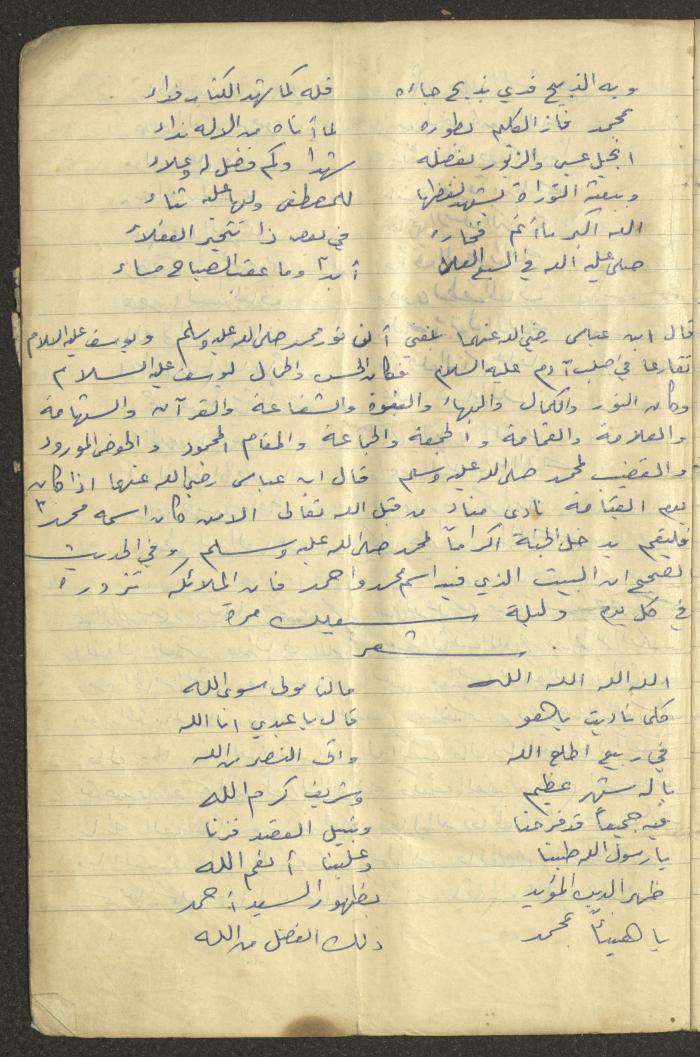 وبه الذبيح فدي بذبح جاءه فله كما شهد الكتاب فداء
بمحمد فاز الكليم بطوره لما أتاه من الاله نداء
انجيل عيسى والزبور بفضله شهدا وكم فضل له وعلاء
وبنعته التوراة تشهد لفظها للمصطفى ولها عليه ثناء
الله اكبر ما أتم فخاره في بعض ذا تتحير العقلاء
صلى عليه الله في السبع العلا أبداً وما عقب الصباح مساء
قال ابن عباس رضي الله عنهما بلغني أن نور محمد صلى الله عليه وسلم ويوسف عليه السلام
تقارعا في صلب آدم عليه السلام فكان الحسن والجمال ليوسف عليه السلام
وكان النور والكمال والبهاء والنبوة والشفاعة والقرآن والشهامة
والعلامة والغمامة والجمعة والجماعة والمقام المحمود والحوض المورود
والقضيب لمحمد صلى الله عليه وسلم قال ابن عباس رضي الله عنهما اذا كان
يوم القيامة نادى مناد من قبل الله تعالى الا من كان اسمه محمد
فليقم يدخل الجنة اكراماً لمحمد صلى الله عليه وسلم وفي الحديث
الصحيح ان البيت الذي فيه اسم محمد واحمد فان الملائكه تزوره
في كل يوم وليلة سبعين مرة
شعر
الله الله الله الله مالنا مولى سوى الله
كلما ناديت ياهو قال يا عبدي انا الله
في ربيع اطلع الله واتى النصر من الله
ياله شهر عظيم وشريف كرم الله
فيه جميعاً قد فرحنا وبنيل القصد فزنا
يا رسول الله طبنا وعلينا أنعم الله
ظهر الدين المؤيد بظهور السيد أحمد
يا هنيئاً بمحمد ذلك الفضل من الله